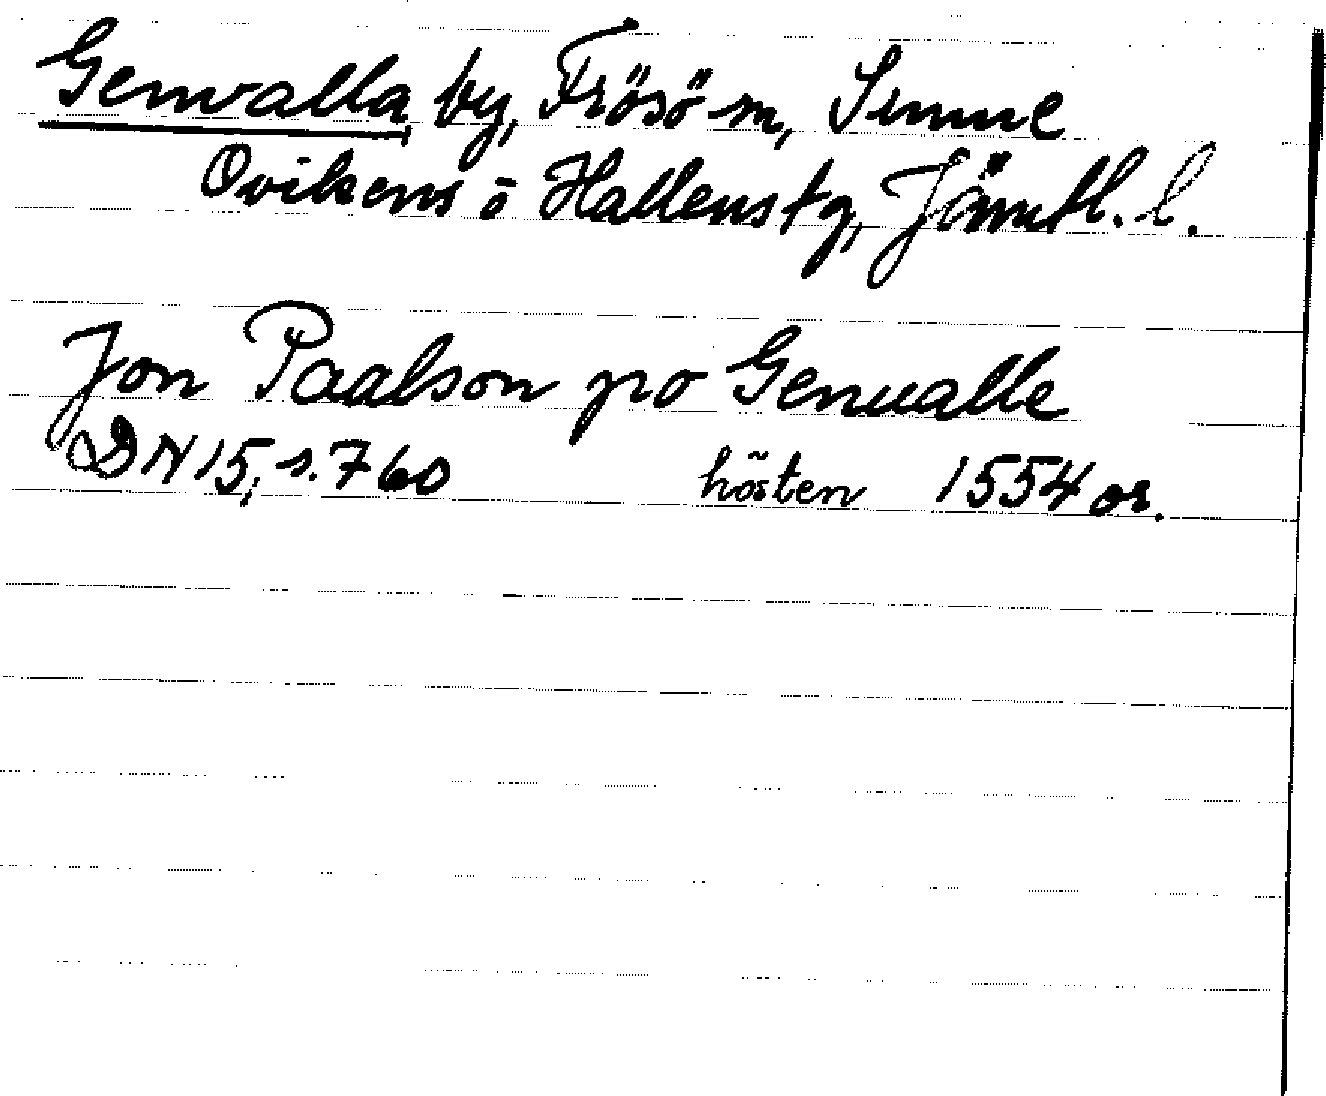 Genvalla by, Frösö sn, Sunne
Ovikens o Hallens tg, Jämtl. l.
Jon Paalson po Genualle
DN 15, s. 760 hösten 1554 or.